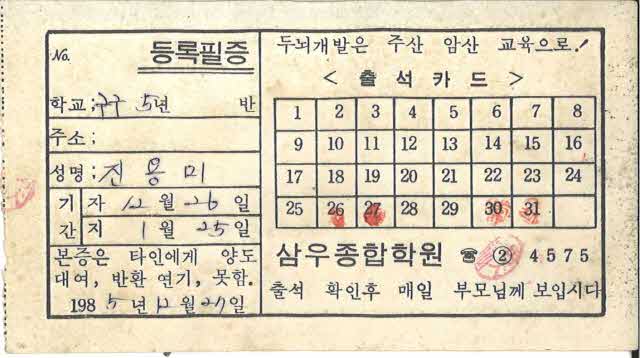 No. 등록필증
학교; 5년 반
주소;
성명; 진용미
기간 자 12월 26일
지 1월 25일
본증은 타인에게 양도
대여, 반환 연기, 못함.
1985년 12월 27일
두뇌개발은 주산 암산 교육으로!
< 출석카드 >
1 2 3 4 5 6 7 8
9 10 11 12 13 14 15 16
17 18 19 20 21 22 23 24
25 26 27 28 29 30 31
삼우종합학원 ☎ ② 4575
출석 확인후 매일 부모님께 보입시다